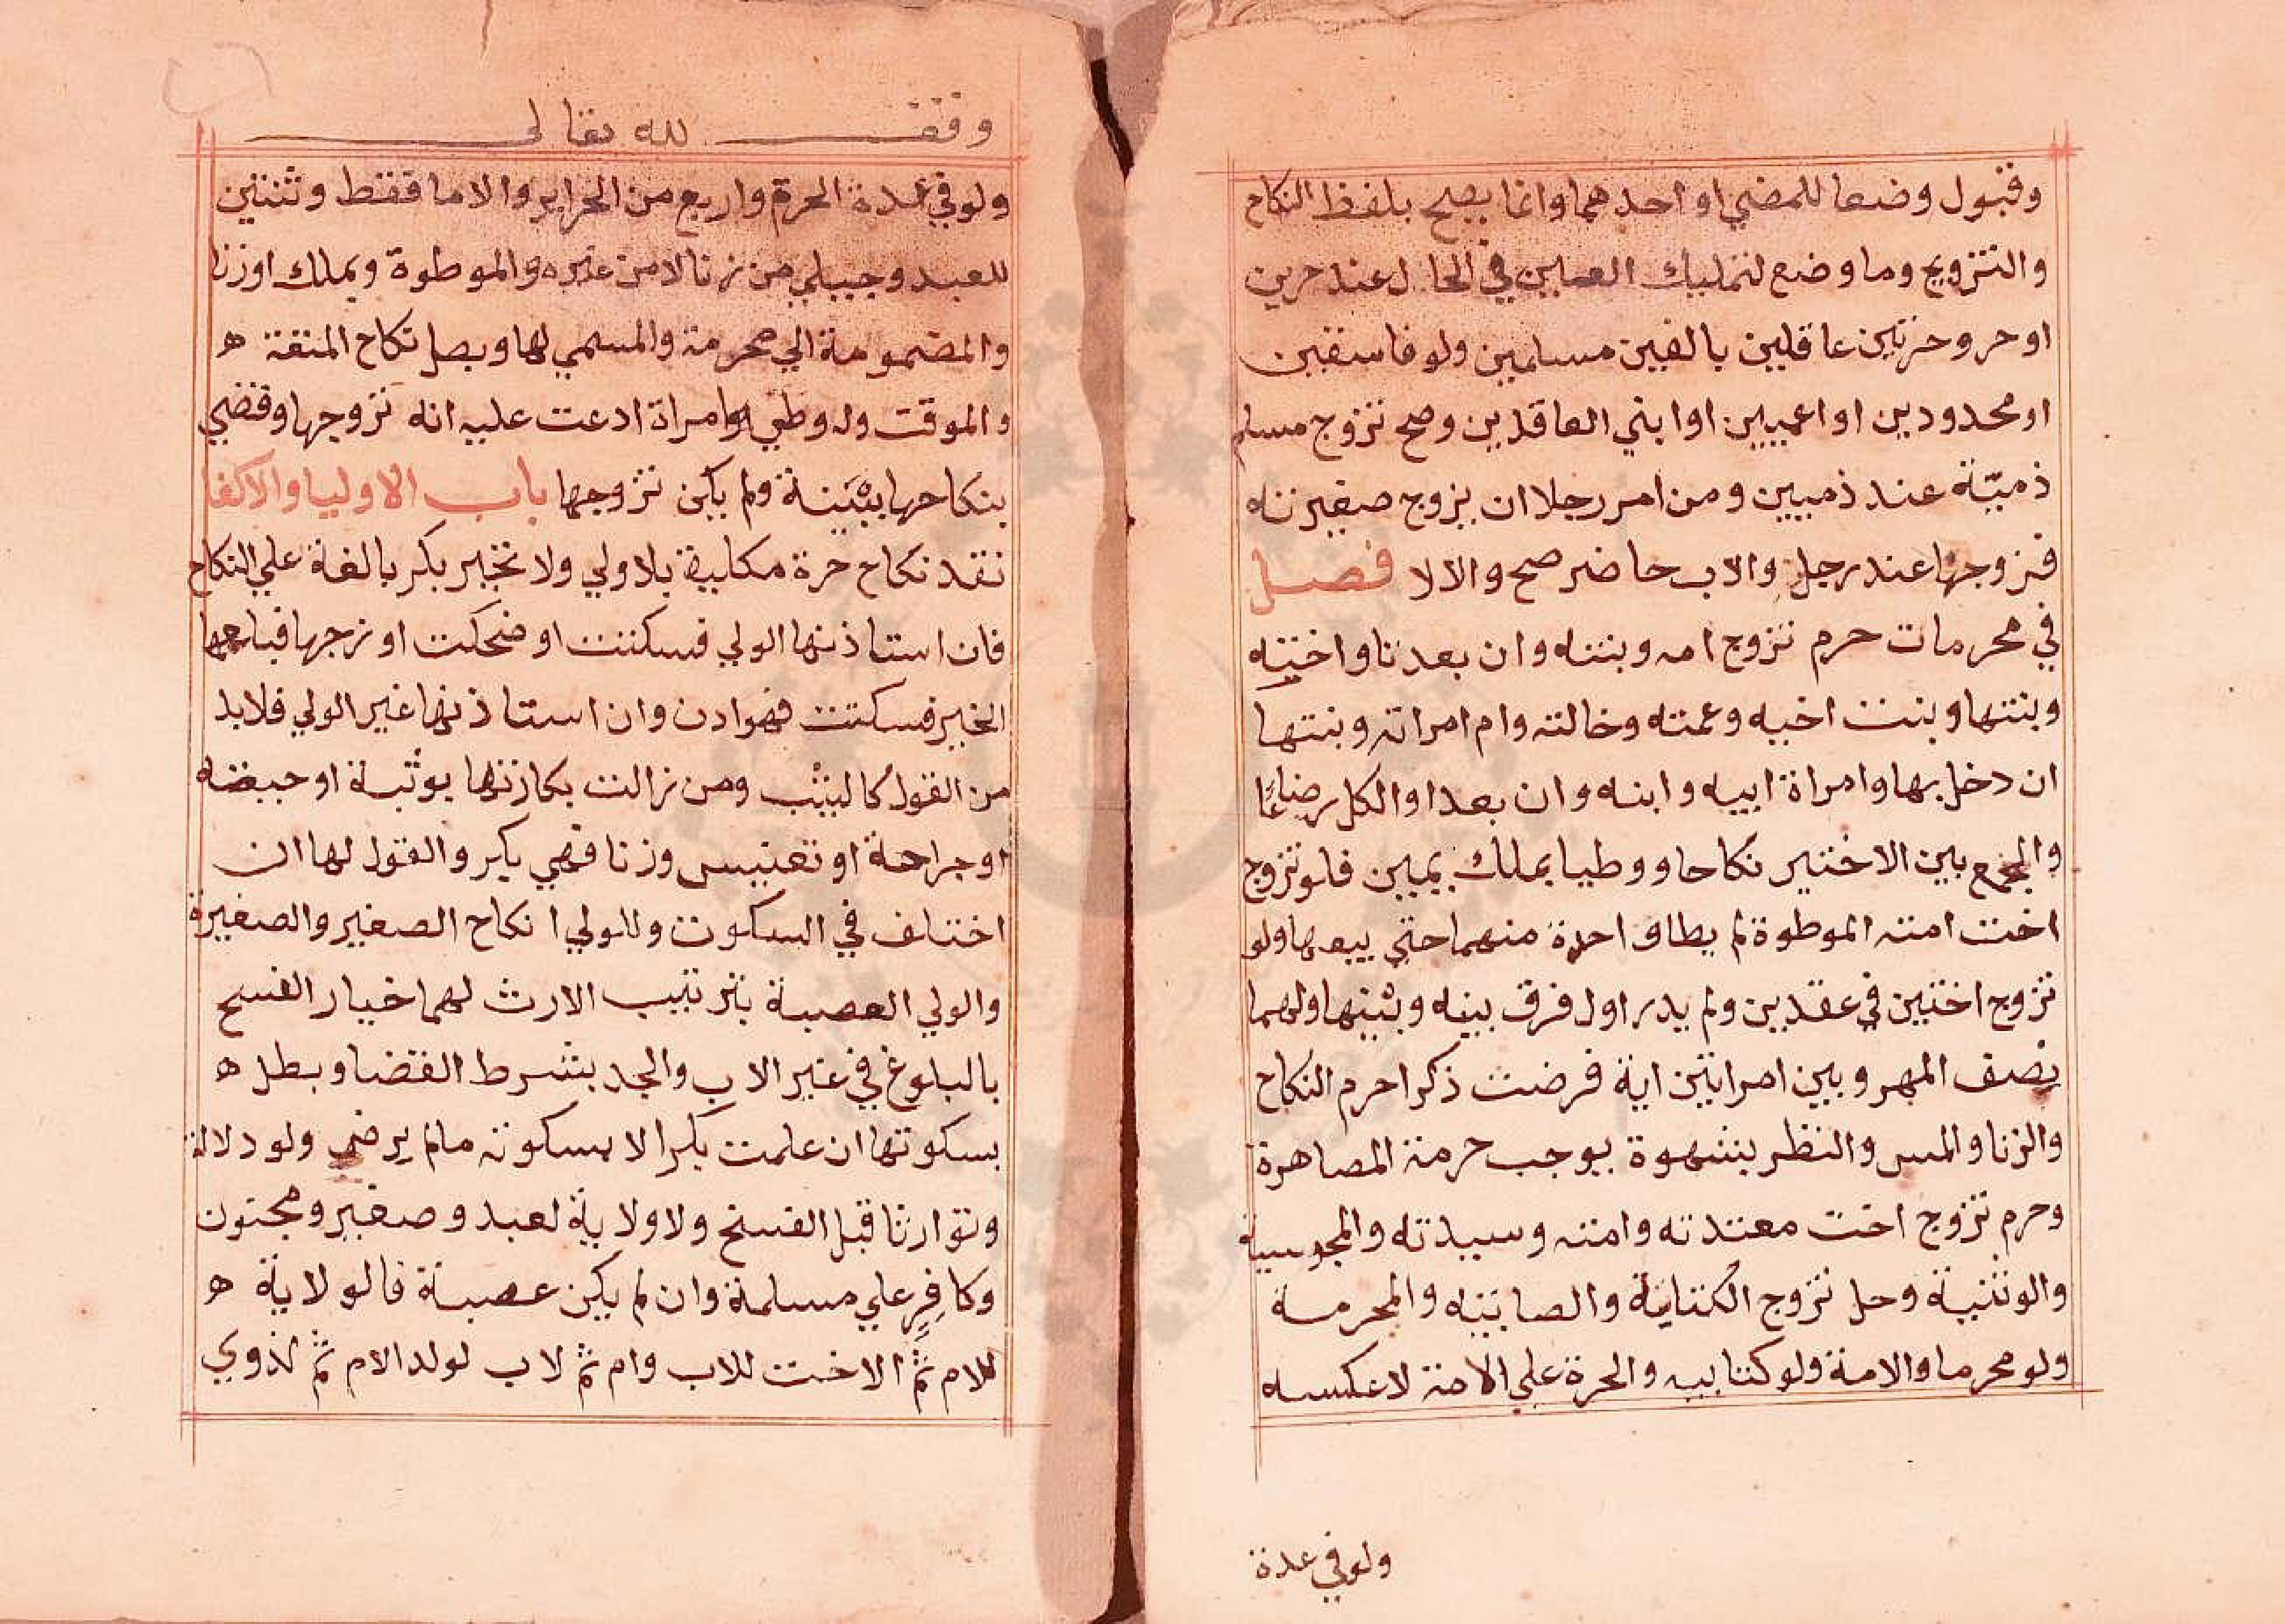 وقبول وضعا للمضي او احدهما وانما يصح بلفظ النكاح
والتزويج وما وضع لتمليك العين في الحال عند حرين
او حر وحرتين عاقلين بالغين مسلمين ولو فاسقين
او محدودين او اعميين او ابني العاقدين وصح تزوج مسلم
ذميّة عند ذميين ومن امر رجلا ان يزوج صغيرته
فزوجها عند رجل والاب حاضر صح والالا فصل
في محرمات حرم تزوج امه وبنته وان بعدتا واخته
وبنتها وبنت اخيه وعمته وخالته وام امراته وبنتها
ان دخل بها وامراة ابيه وابنه وان بعدا والكل رضاعًا
والجمع بين الاختين نكاحا ووطيا بملك يمين فلو تزوج
اخت امته الموطوة لم يطا واحدة منهما حتي يبيعها ولو
تزوج اختين في عقدين ولم يدر اول فرق بينه وبينها ولهما
نصف المهر وبين امراتين اية فرضت ذكرا حرم النكاح
والزنا والمس والنظر بشهوة يوجب حرمة المصاهرة
وحرم تزوج اخت معتدته وامته وسيدته والمجوسية
والوثنية وحل تزوج الكتابية والصابيه والمحرمة
ولو محرما والامة ولو كتابيه والحرة علي الامة لا عكسه
ولو في عدة
وقف لله تعالى
ولو في عدة الحرة واربع من الحراير والاما فقط وثنتين
للعبد وحبلي من زنا لا من غيره والموطوة بملك او زنا
والمضمومة الي محرمة والمسمي لها وبطل نكاح المتعة ه
والموقت وله وطي امراة ادعت عليه انه تزوجها وقضي
بنكاحها ببينة ولم يكن تزوجها باب الاوليا والاكفا
نفذ نكاح حرة مكلفة بلا ولي ولا تجبر بكر بالغة علي النكاح
فان استاذنها الولي فسكتت او ضحكت او زوجها فبلغها
الخبر فسكتت فهو اذن وان استاذنها غير الولي فلا بد
من القول كالثيب ومن زالت بكارتها بوثبة او حيضة
او جراحة او تعنيس وزنا فهي بكر والقول لها ان
اختلف في السكوت وللولي انكاح الصغير والصغيرة
والولي العصبة بترتيب الارث لهما خيار الفسخ
بالبلوغ في غير الاب والجد بشرط القضا وبطل ه
بسكوتها ان علمت بكرا لا بسكوته مالم يرضي ولو دلالة
وتوارثا قبل الفسخ ولا ولاية لعبد وصغير ومجنون
وكافِرٍ علي مسلمة وان لم يكن عصبة فالولاية ه
للام ثم الاخت للاب وام ثم لاب لولد الام ثم لذوي